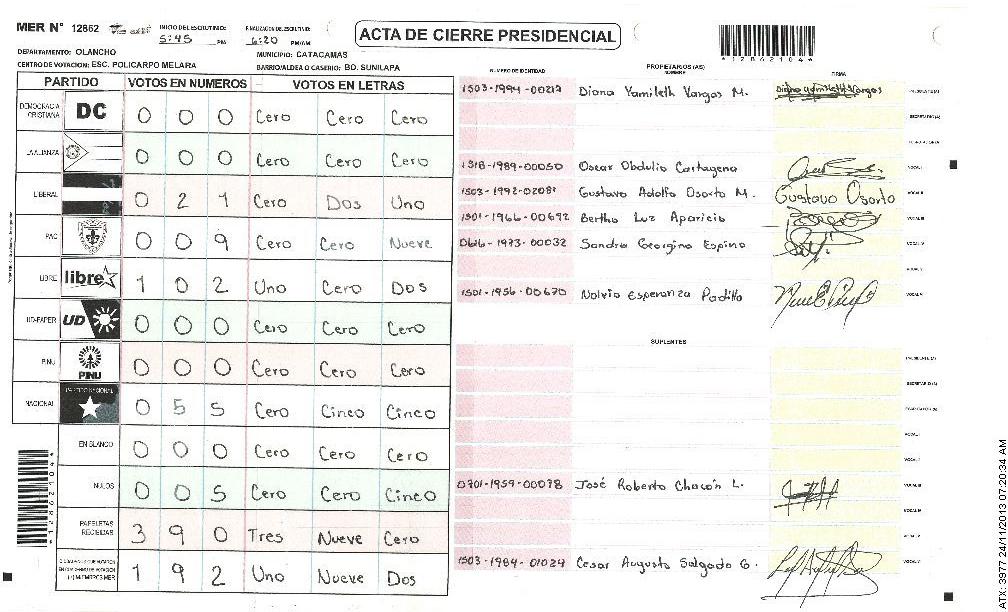 MER N° 12862 INICIO DEL ESCRUTINIO: 5:45 PM FINALIZACION DEL ESCRUTINIO: 6:20 PM/AM
ACTA DE CIERRE PRESIDENCIAL
*12862104*
DEPARTAMENTO: OLANCHO MUNICIPIO: CATACAMAS
CENTRO DE VOTACION: ESC. POLICARPO MELARA BARRIO/ALDEA O CASERIO: BO. SUNILAPA
PARTIDO VOTOS EN NUMEROS VOTOS EN LETRAS
DEMOCRACIA CRISTIANA DC 0 0 0 Cero Cero Cero
LA ALIANZA 0 0 0 Cero Cero Cero
LIBERAL 0 2 1 Cero Dos Uno
PAC 0 0 9 Cero Cero Nueve
LIBRE libre 1 0 2 Uno Cero Dos
UD-FAPER UD 0 0 0 Cero Cero Cero
PINU PINU 0 0 0 Cero Cero Cero
NACIONAL PARTIDO NACIONAL 0 5 5 Cero Cinco Cinco
EN BLANCO 0 0 0 Cero Cero Cero
NULOS 0 0 5 Cero Cero Cinco
PAPELETAS RECIBIDAS 3 9 0 Tres Nueve Cero
1 9 2 Uno Nueve Dos
*12862104*
NUMERO DE IDENTIDAD PROPIETARIOS (AS) NOMBRE FIRMA
1503-1994-00217 Diana Yamileth Vargas M. Diana Yamileth Vargas PRESIDENTE (A)
SECRETARIO (A)
1518-1989-00050 Oscar Obdulio Cartagena VOCAL I
1503-1992-02081 Gustavo Adolfo Osorto M. Gustavo Osorto VOCAL II
1501-1966-00692 Bertha Luz Aparicio VOCAL III
0616-1973-00032 Sandra Georgina Espino VOCAL IV
VOCAL V
1501-1956-00670 Nolvia Esperanza Padilla VOCAL VI
SUPLENTES
PRESIDENTE (A)
SECRETARIO (A)
ESCRUTADOR (A)
VOCAL I
VOCAL II
0701-1959-00078 José Roberto Chacón L. VOCAL III
VOCAL IV
VOCAL V
1503-1984-01029 Cesar Augusto Salgado G.
ATX: 3977 24/11/2013 07:20:34 AM